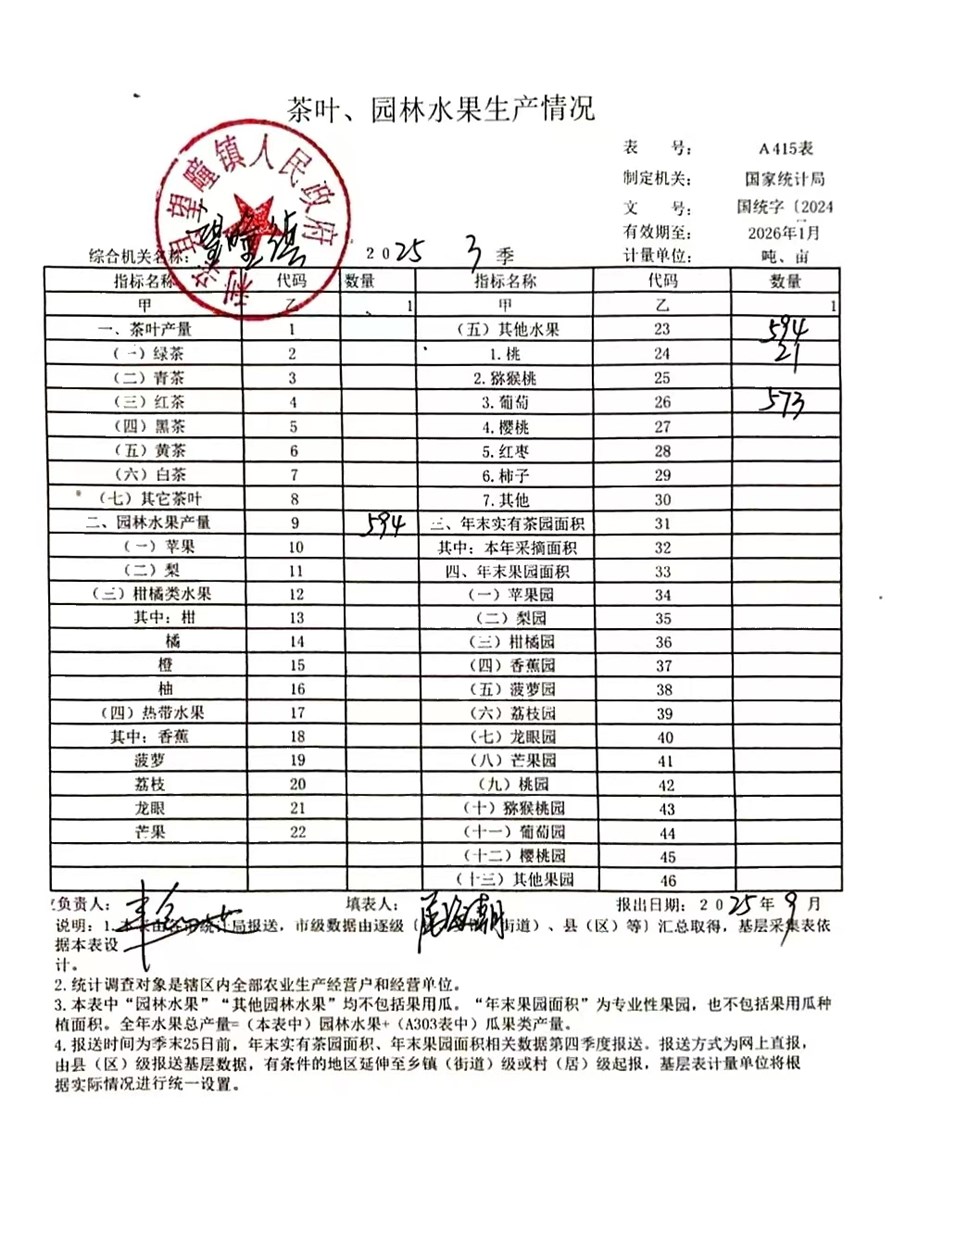 茶叶、园林水果生产情况
表 号： A415表
制定机关： 国家统计局
文 号： 国统字〔2024
有效期至： 2026年1月
综合机关名称： 望疃镇 2025 3 季 计量单位： 吨、亩
望疃镇人民政府
指标名称 代码 数量 指标名称 代码 数量
甲 乙 1 甲 乙 1
一、茶叶产量 1 （五）其他水果 23 594
（一）绿茶 2 1.桃 24 21
（二）青茶 3 2.猕猴桃 25
（三）红茶 4 3.葡萄 26 573
（四）黑茶 5 4.樱桃 27
（五）黄茶 6 5.红枣 28
（六）白茶 7 6.柿子 29
（七）其它茶叶 8 7.其他 30
二、园林水果产量 9 594 三、年末实有茶园面积 31
（一）苹果 10 其中：本年采摘面积 32
（二）梨 11 四、年末果园面积 33
（三）柑橘类水果 12 （一）苹果园 34
其中：柑 13 （二）梨园 35
橘 14 （三）柑橘园 36
橙 15 （四）香蕉园 37
柚 16 （五）菠萝园 38
（四）热带水果 17 （六）荔枝园 39
其中：香蕉 18 （七）龙眼园 40
菠萝 19 （八）芒果园 41
荔枝 20 （九）桃园 42
龙眼 21 （十）猕猴桃园 43
芒果 22 （十一）葡萄园 44
（十二）樱桃园 45
（十三）其他果园 46
负责人： 填表人： 报出日期：2025年9月
说明：1.本表由各市统计局报送，市级数据由逐级〔 街道）、县（区）等〕汇总取得，基层采集表依
据本表设
计。
2.统计调查对象是辖区内全部农业生产经营户和经营单位。
3.本表中“园林水果”“其他园林水果”均不包括果用瓜。“年末果园面积”为专业性果园，也不包括果用瓜种
植面积。全年水果总产量=（本表中）园林水果+（A303表中）瓜果类产量。
4.报送时间为季末25日前，年末实有茶园面积、年末果园面积相关数据第四季度报送。报送方式为网上直报，
由县（区）级报送基层数据，有条件的地区延伸至乡镇（街道）级或村（居）级起报，基层表计量单位将根
据实际情况进行统一设置。